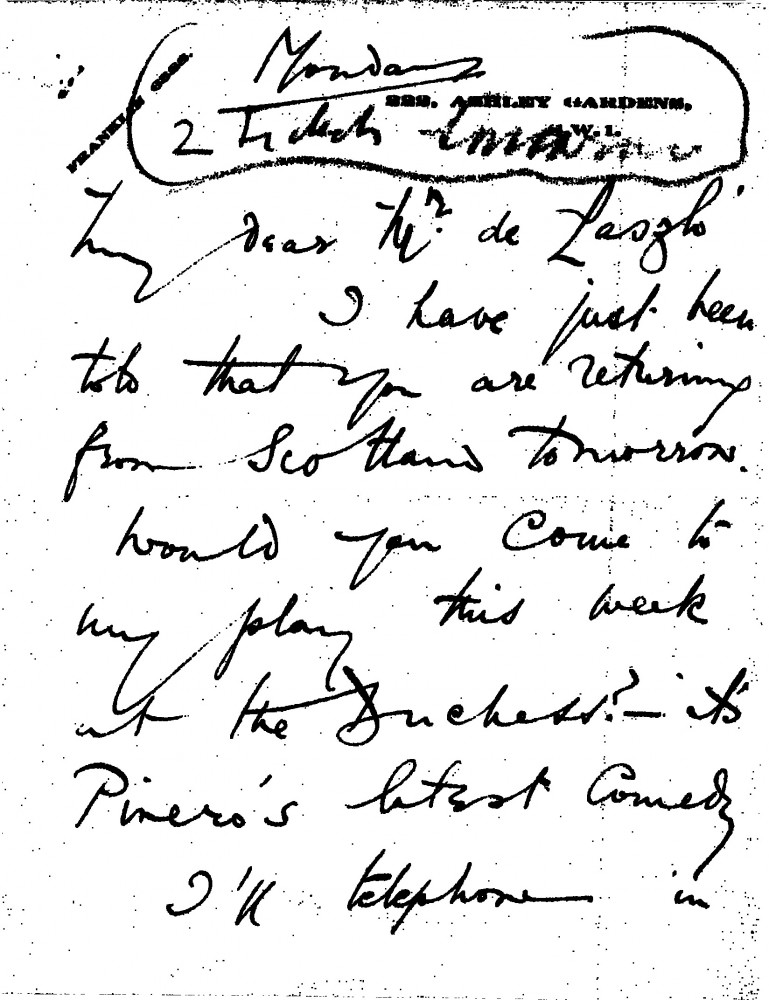 Monday
FRANKLIN
222, ASHLEY GARDENS,
S.W.1.
2 tickets
My dear Mr. de Laszló
I have just been
told that you are returning
from Scotland tomorrow.
Would you come to
my play this week
at the Duchess? – it's
Pinero's latest Comedy
I'll telephone in